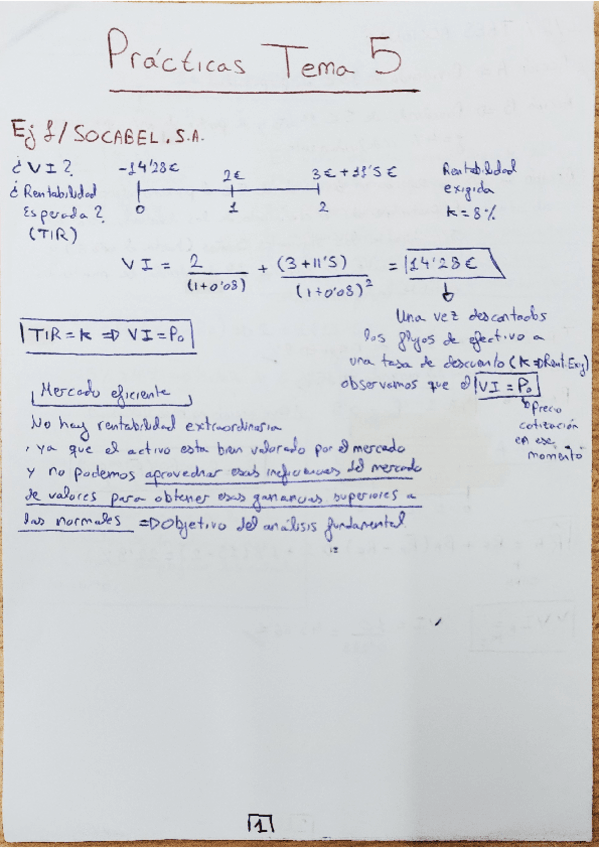 Prácticas Tema 5
Ej 1/ SOCABEL.S.A.
¿VI?
¿Rentabilidad
Esperada?
(TIR)
-14'28€ 2€ 3€ + 11'5€
0 1 2
Rentabilidad
exigida
K = 8%
VI = 2/(1+0'08) + (3+11'5)/(1+0'08)² = 14'28€
Una vez descontados
los flujos de efectivo a
una tasa de descuento (K⇒Rent.Exig)
observamos que el VI = P₀
Precio
cotización
en ese
momento
TIR = K ⇒ VI = P₀
Mercado eficiente
No hay rentabilidad extraordinaria
, ya que el activo esta bien valorado por el mercado
y no podemos aprovechar esas ineficiencias del mercado
de valores para obtener esas ganancias superiores a
las normales ⇒ Objetivo del análisis fundamental
1